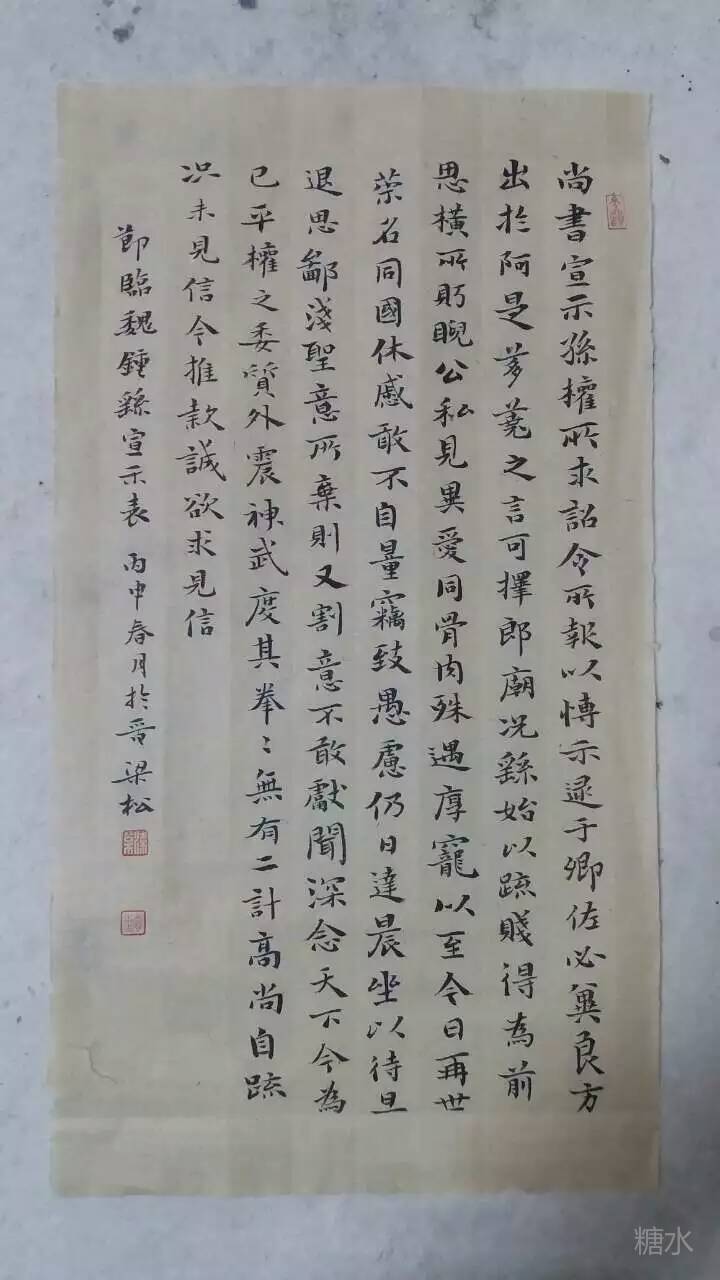 尚書宣示孫權所求詔令所報以博示逮于卿佐必冀良方
出於阿是芻蕘之言可擇郎廟況繇始以疏賤得為前
恩橫所眄睨公私見異愛同骨肉殊遇厚寵以至今日再世
榮名同國休慼敢不自量竊致愚慮仍日達晨坐以待旦
退思鄙淺聖意所棄則又割意不敢獻聞深念天下今為
已平權之委質外震神武度其拳〻無有二計高尚自疏
況未見信今推款誠欲求見信
節臨魏鍾繇宣示表 丙申春月於晉 梁松
糖水